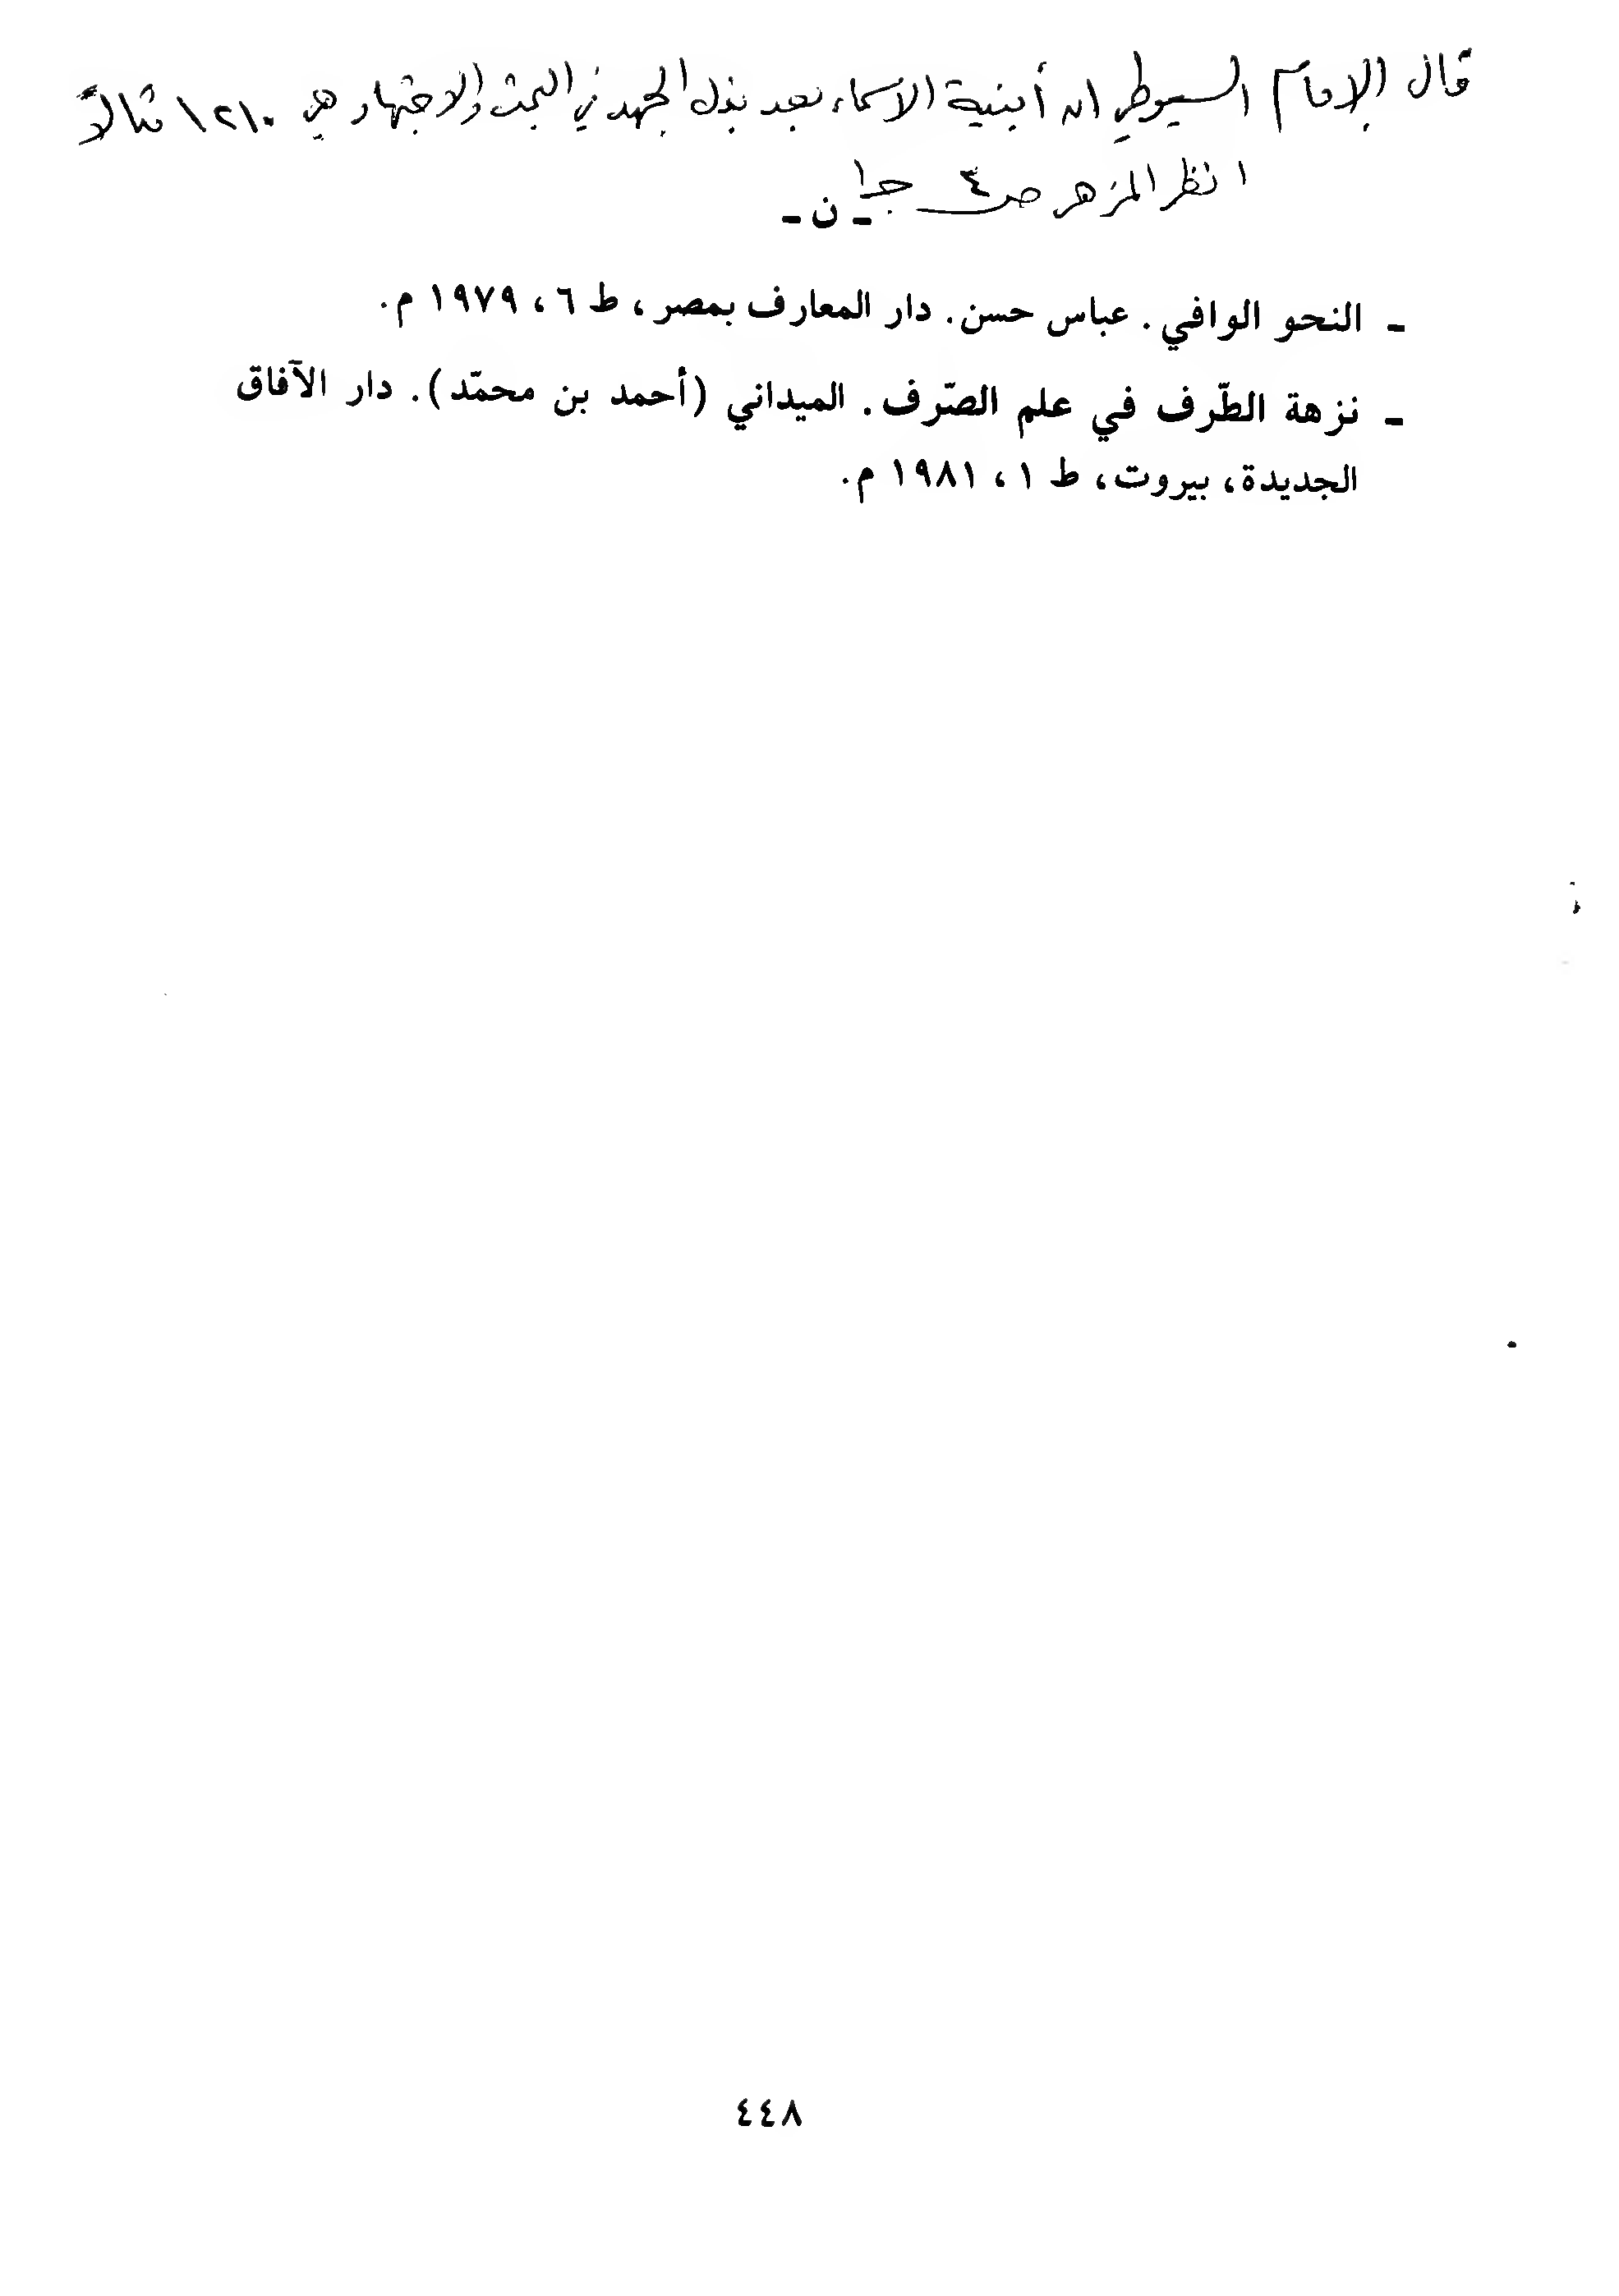 قال الإمام السيوطي ان أبنية الأسماء بعد بذل الجهد في البحث والاجتهاد هي ١٢١٠ مثالاً
انظر المزهر ص ٤ جـ ١
- ن -
- النحو الوافي. عباس حسن. دار المعارف بمصر، ط ٦، ١٩٧٩ م.
- نزهة الطّرف في علم الصّرف. الميداني (أحمد بن محمّد). دار الآفاق
الجديدة، بيروت، ط ١، ١٩٨١ م.
٤٤٨